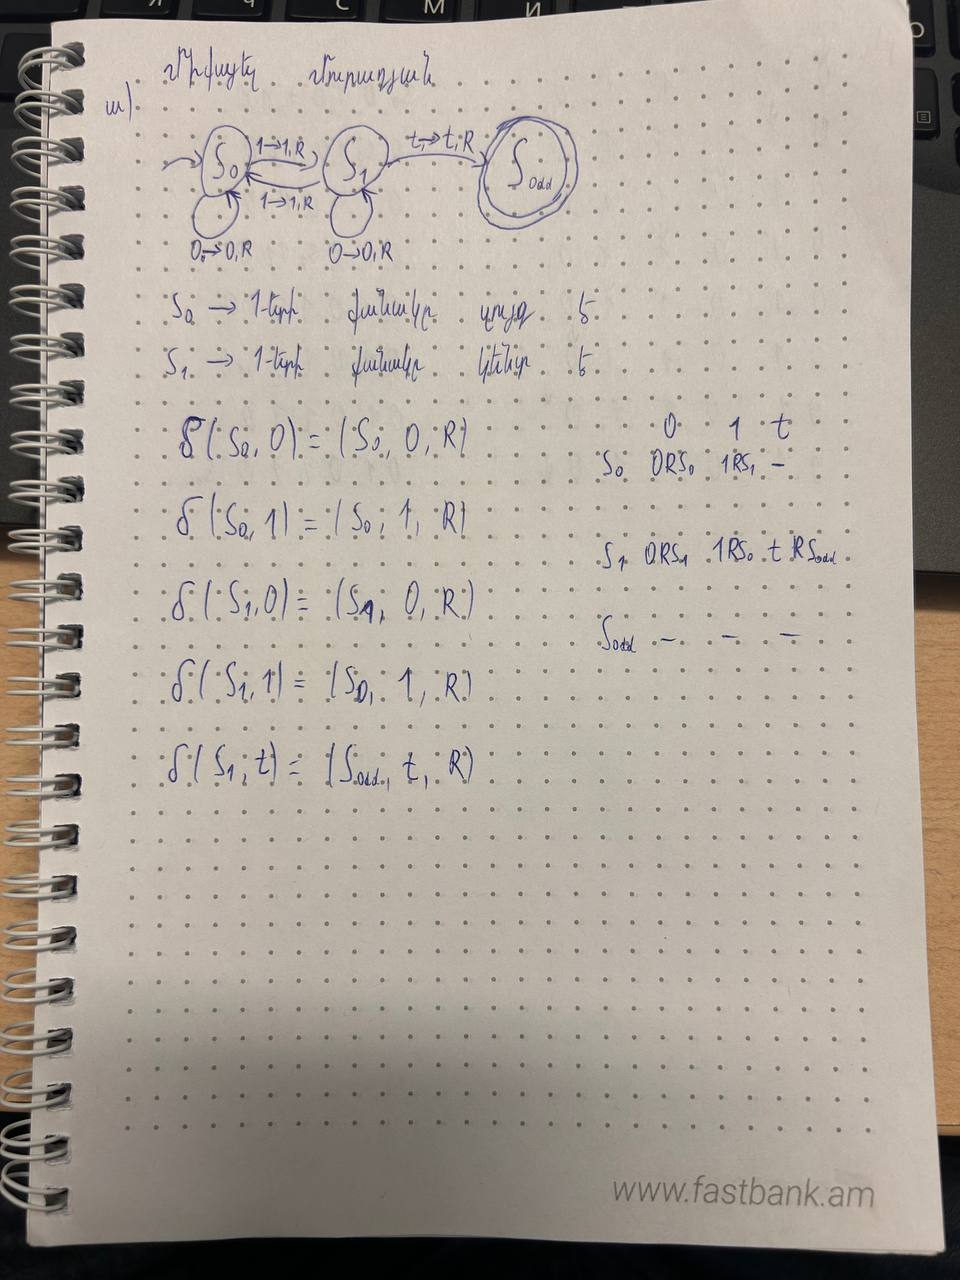 Միքայել Մուրադյան
ա)
S₀ 1→1,R S₁ t→t,R S_odd
1→1,R
0→0,R 0→0,R
S₀ → 1-երի քանակը զույգ է
S₁ → 1-երի քանակը կենտ է
δ(S₀, 0) = (S₀, 0, R)
δ(S₀, 1) = (S₀, 1, R)
δ(S₁, 0) = (S₁, 0, R)
δ(S₁, 1) = (S₀, 1, R)
δ(S₁, t) = (S_odd, t, R)
0 1 t
S₀ 0RS₀ 1RS₁ –
S₁ 0RS₁ 1RS₀ t R S_odd
S_odd – – –
www.fastbank.am